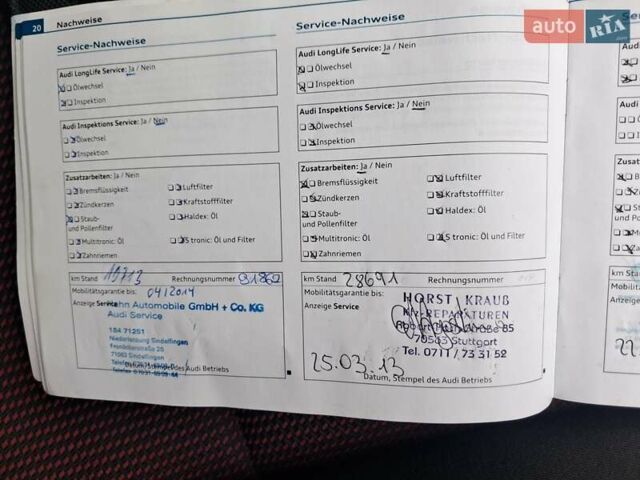 20 Nachweise
Service-Nachweise
Audi LongLife Service: Ja / Nein
Ölwechsel
Inspektion
Audi Inspektions Service: Ja / Nein
Ölwechsel
Inspektion
Zusatzarbeiten: Ja / Nein
Bremsflüssigkeit Luftfilter
Zündkerzen Kraftstofffilter
Staub- Haldex: Öl
und Pollenfilter
Multitronic: Öl S tronic: Öl und Filter
Zahnriemen
km Stand Rechnungsnummer
Mobilitätsgarantie bis: 04/2014
Anzeige Service
Automobile GmbH + Co. KG
Audi Service
184 71251
Niederlassung Sindelfingen
71063 Sindelfingen
Datum, Stempel des Audi Betriebs
Service-Nachweise
Audi LongLife Service: Ja / Nein
Ölwechsel
Inspektion
Audi Inspektions Service: Ja / Nein
Ölwechsel
Inspektion
Zusatzarbeiten: Ja / Nein
Bremsflüssigkeit Luftfilter
Zündkerzen Kraftstofffilter
Staub- Haldex: Öl
und Pollenfilter
Multitronic: Öl S tronic: Öl und Filter
Zahnriemen
km Stand 28691 Rechnungsnummer
Mobilitätsgarantie bis:
Anzeige Service
HORST KRAUß
Kfz-REPARATUREN
Stuttgart
Tel. 0711/73 31 52
25.03.13
Datum, Stempel des Audi Betriebs
auto RIA